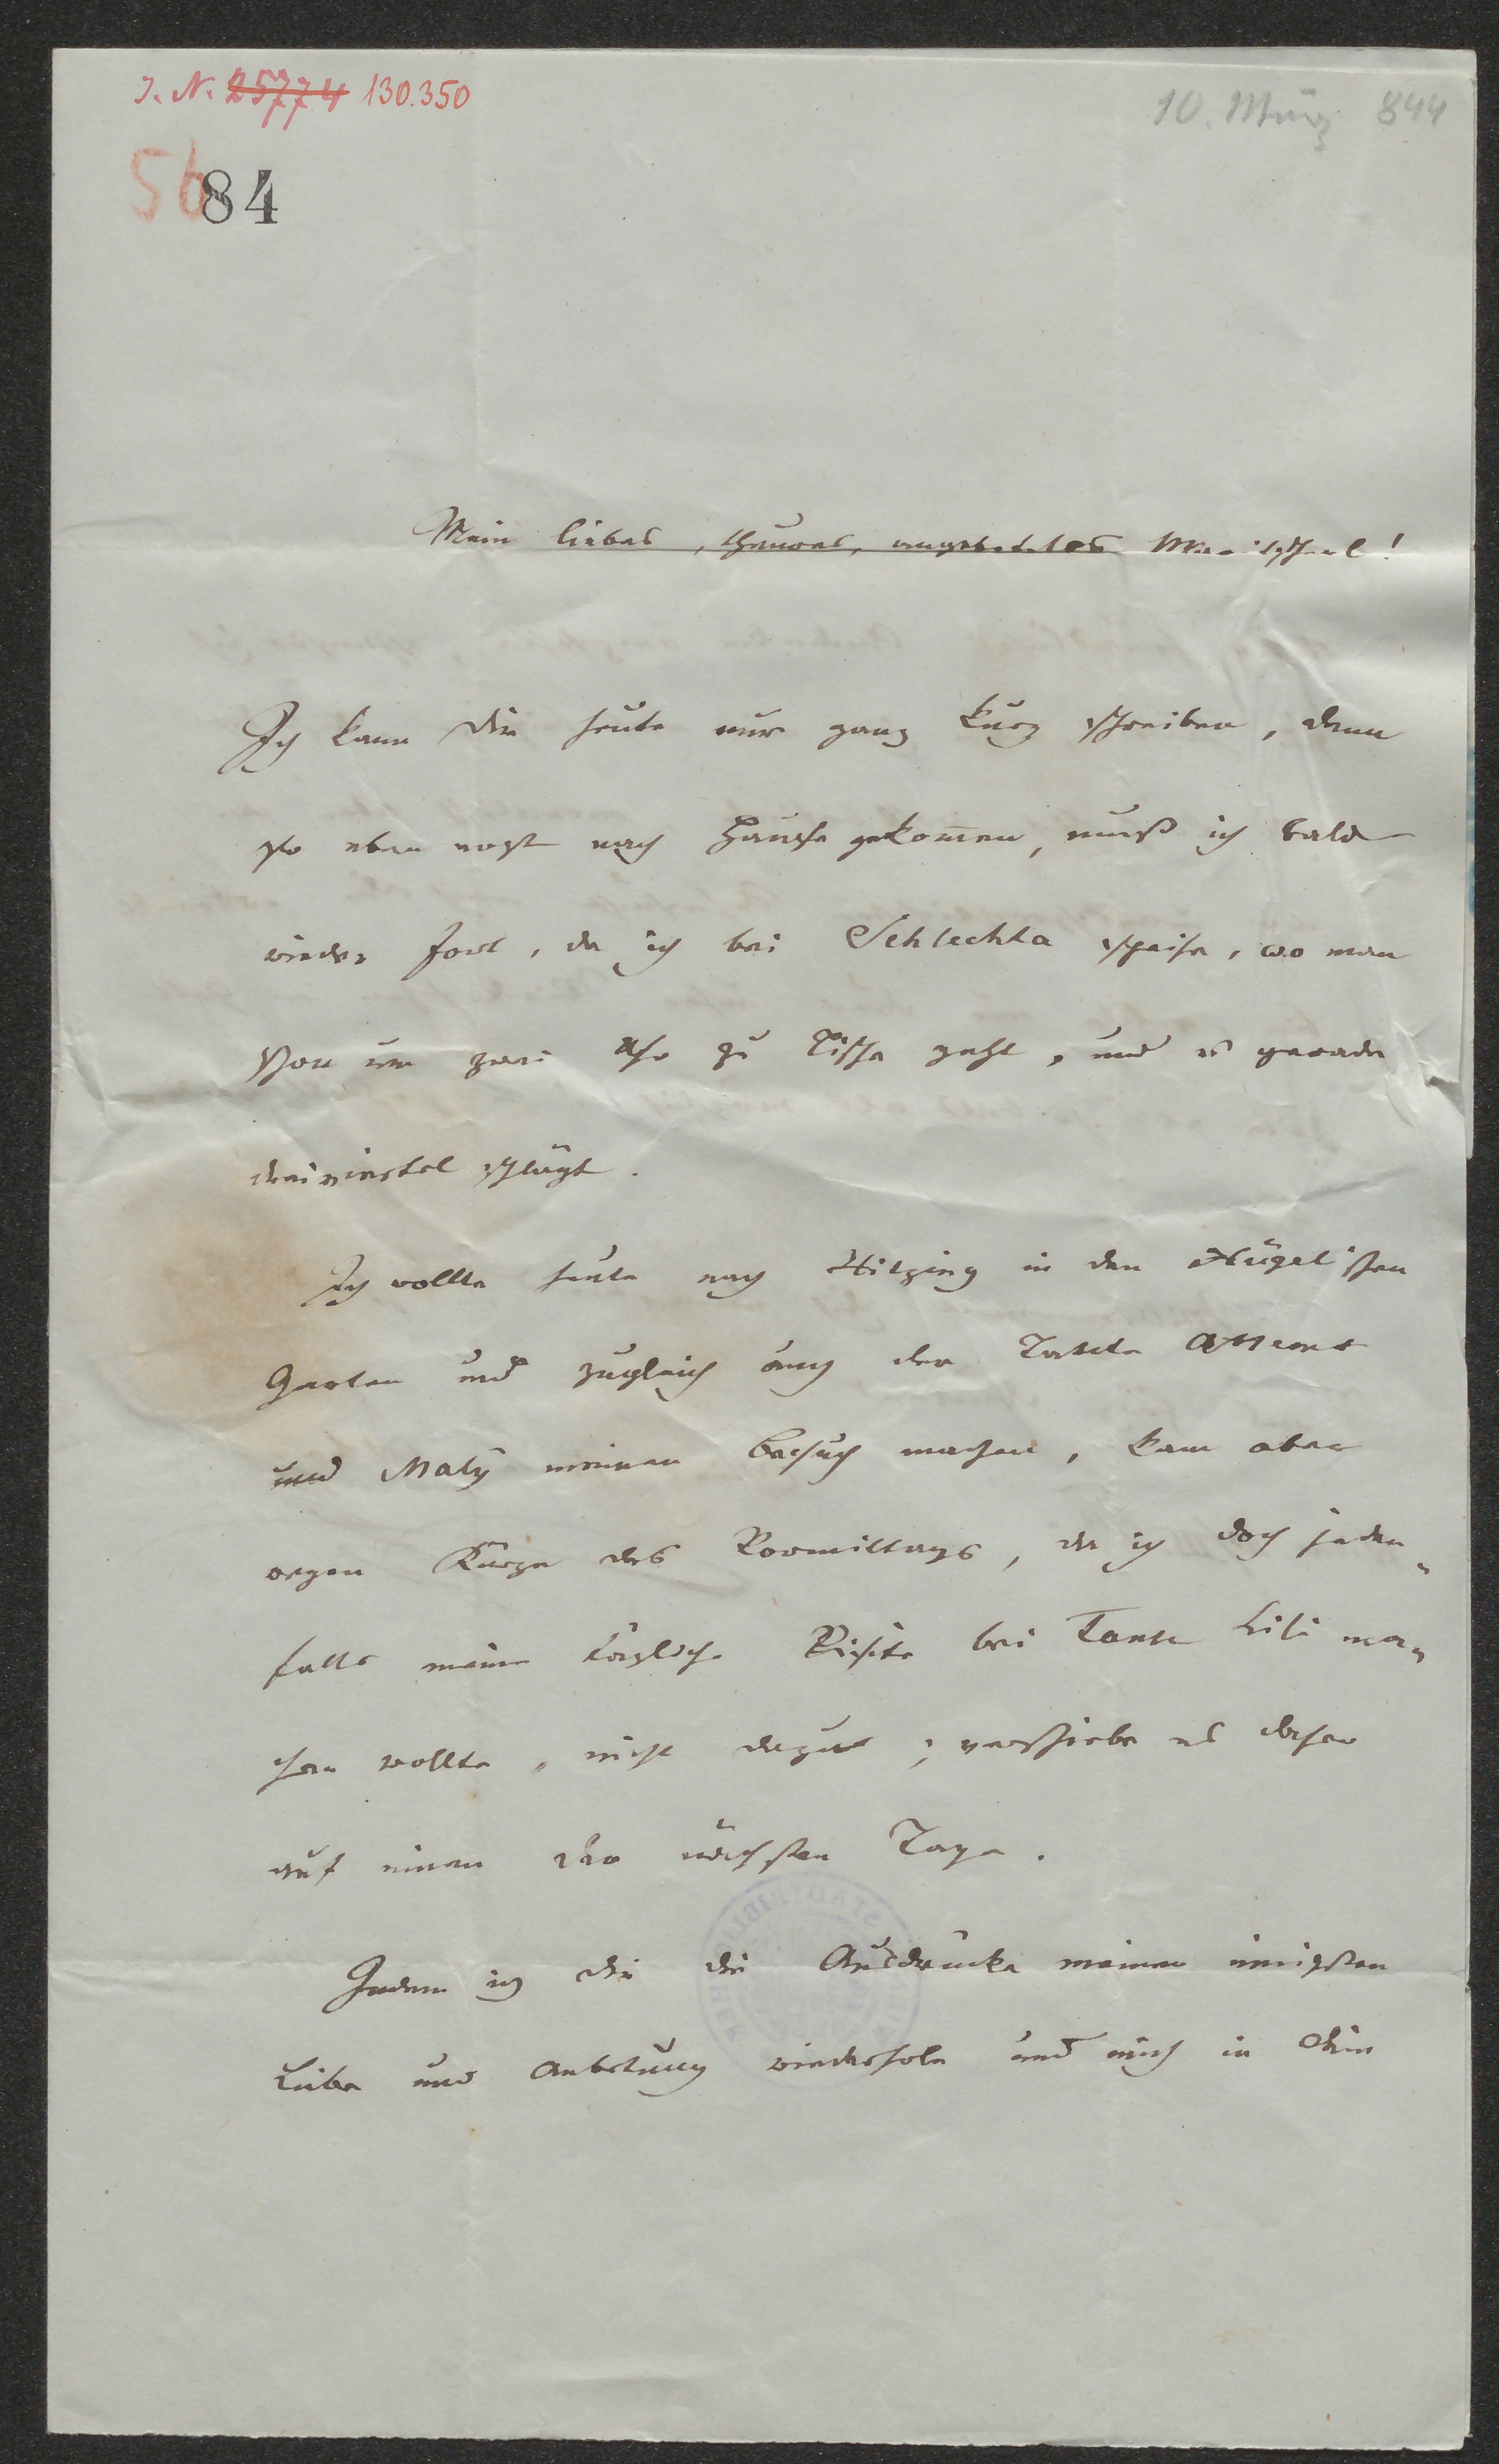 J. N. 25774 130.350
10. März 844
56
84
Mein liebes, theures, angebetetes Maritscherl!
Ich kann Dir heute nur ganz kurz schreiben, denn
so eben erst nach Hause gekommen, muß ich bald
wieder fort, da ich bei Schlechta speise, wo man
schon um zwei Uhr zu Tische geht, und es gerade
dreiviertel schlägt.
Ich wollte heute nach Hitzing in den Hügel'schen
Garten und zugleich auch der Tante Attems
und Maly meinen Besuch machen, kam aber
wegen Kürze des Vormittags, da ich doch jeden-
falls meine tägliche Visite bei Tante Lili ma-
chen wollte, nicht dazu; verschiebe es daher
auf einen der nächsten Tage.
Indem ich Dir die Ausdrücke meiner innigsten
Liebe und Anbetung wiederhole und mich in Dein